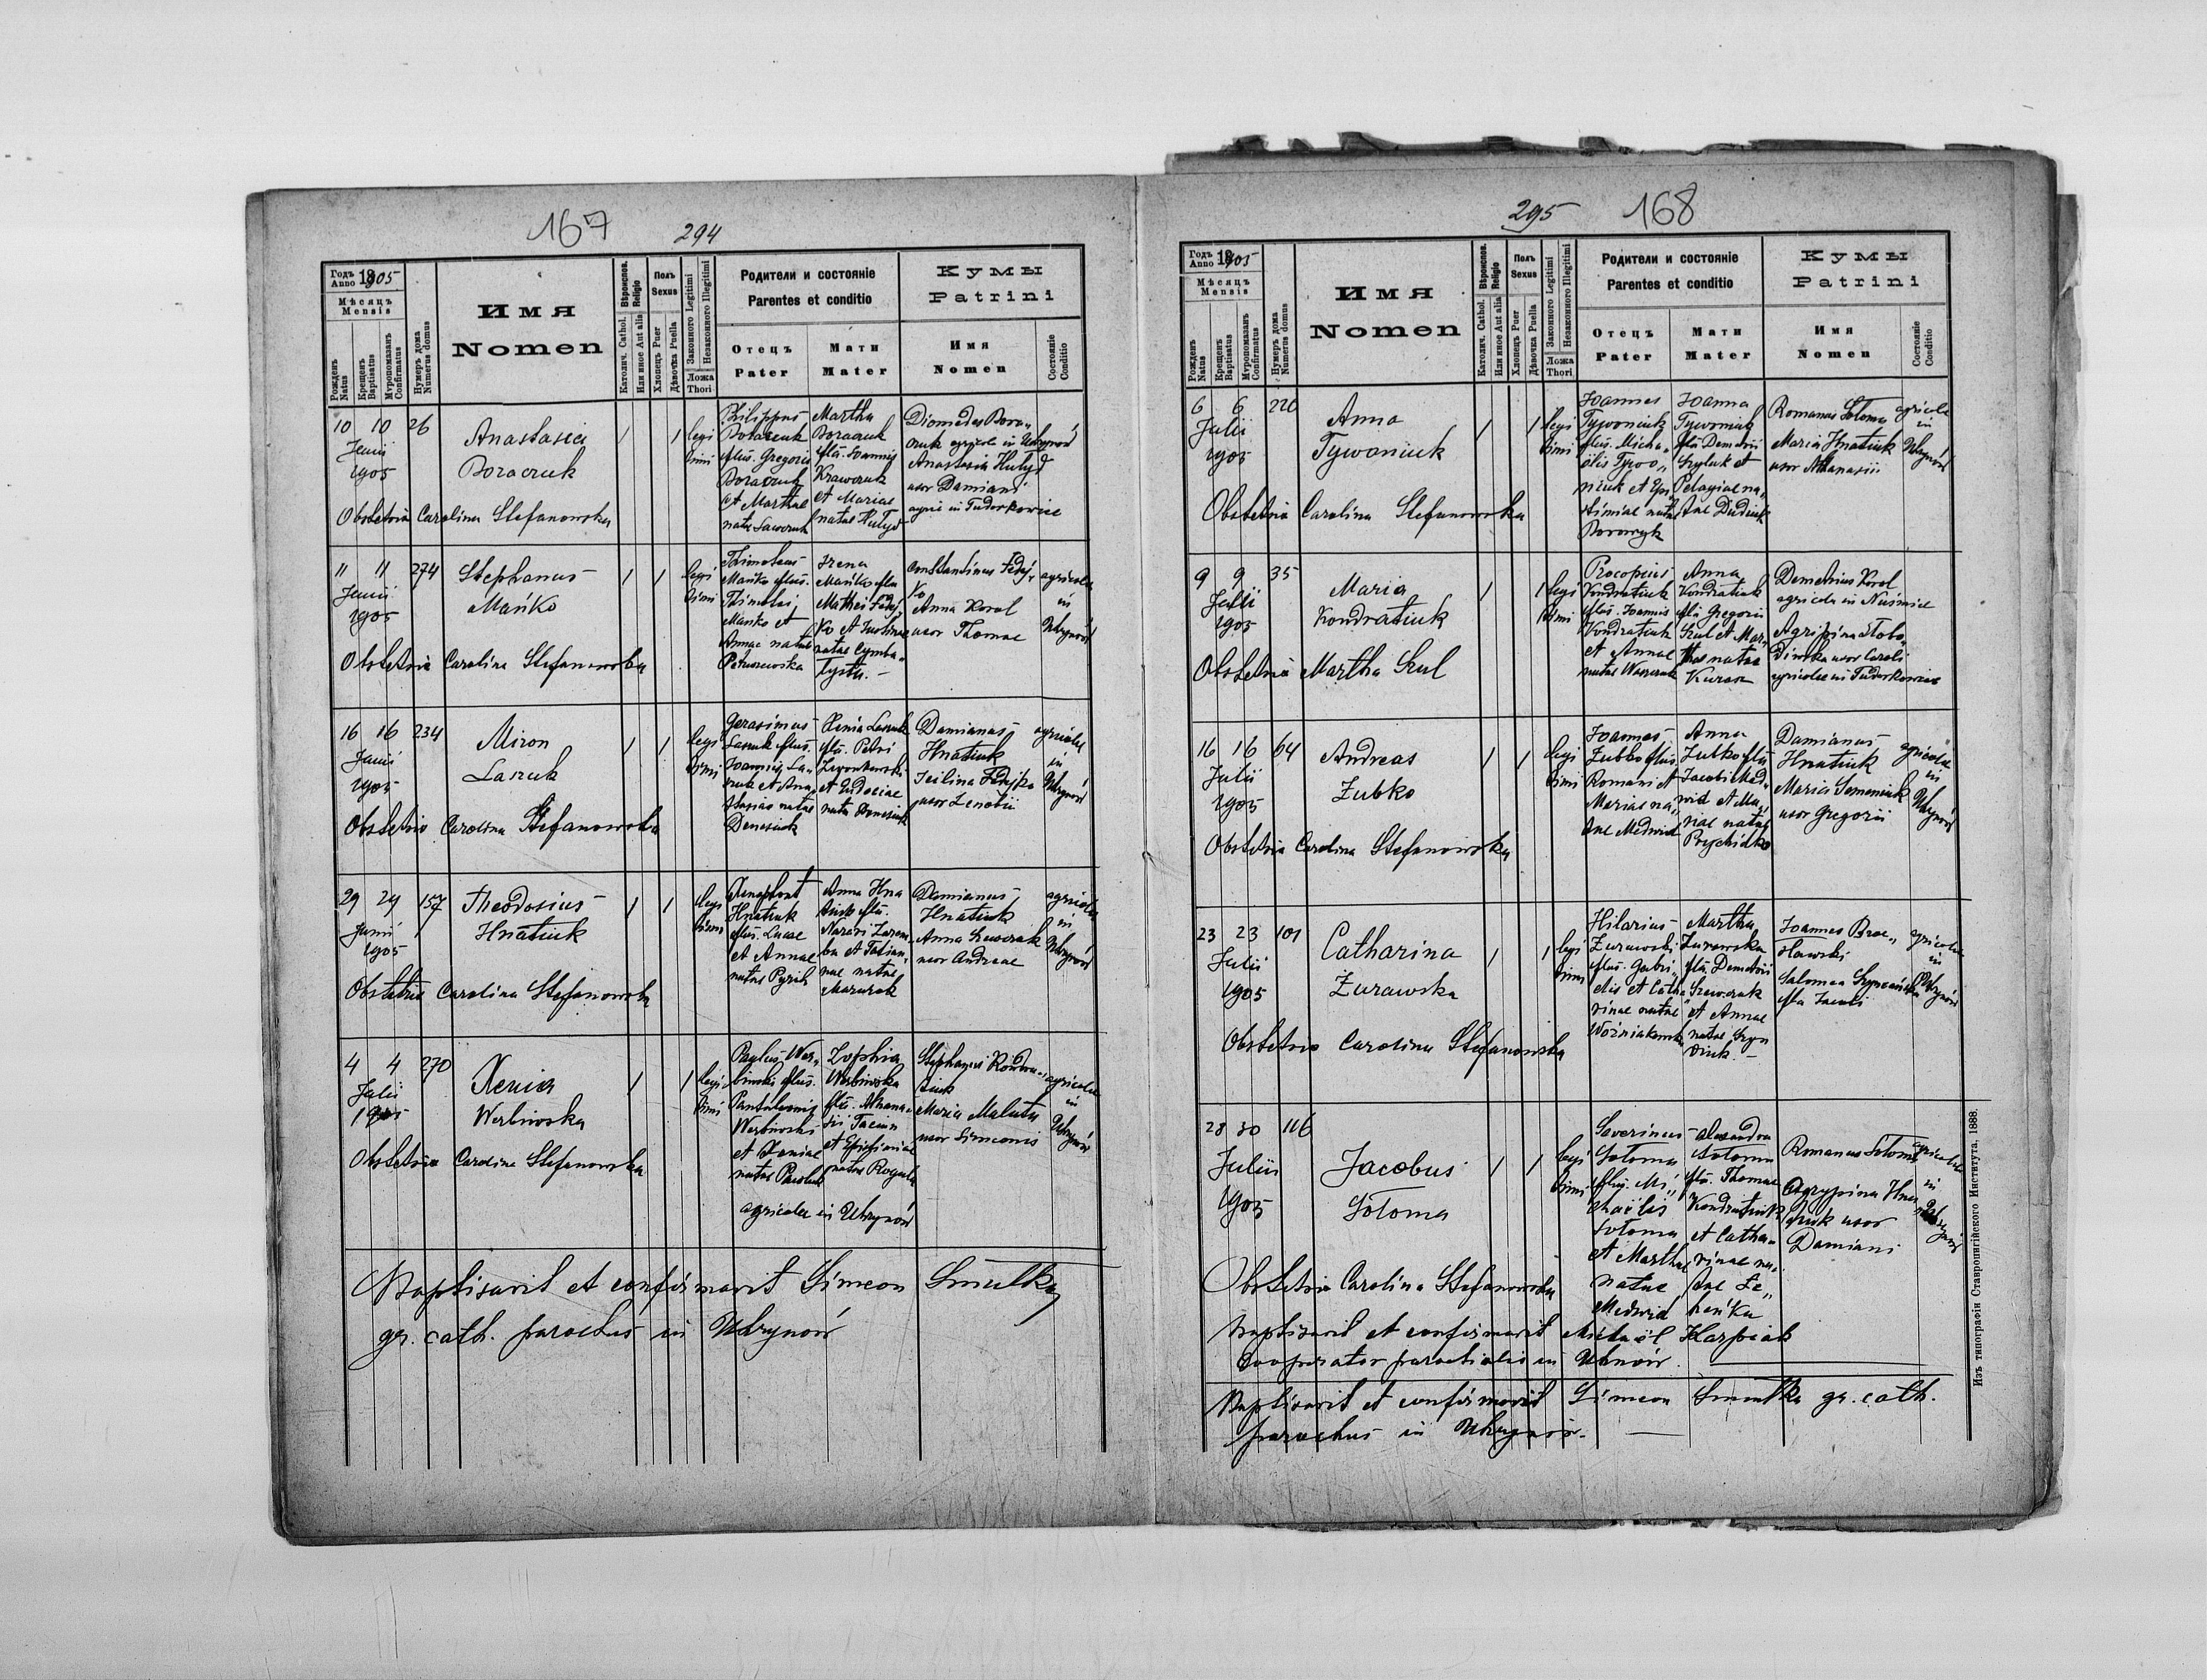 167 294
Годъ Anno 1905
Мѣсяцъ
Mensis
Рожденъ
Natus
Крещенъ
Baptisatus
Мѵропомазанъ
Confirmatus
Нумеръ дома
Numerus domus
Имя
Nomen
Вѣроисповѣд.
Religio
Католич. Cathol.
Или иное Aut alia
Полъ
Sexus
Хлопецъ Puer
Дѣвочка Puella
Законного Legitimi
Незаконного Illegitimi
Ложа
Thori
Родители и состояніе
Parentes et conditio
Отецъ
Pater
Мати
Mater
Кумы
Patrini
Имя
Nomen
Состояніе
Conditio
10 10 26
Junii
1905
Anastasia
Boraczuk
1 1 legi
timi
Philippus
Boraczuk
flius Gregorii
Boraczuk
et Marthae
natae Sawczuk
Martha
Boraczuk
flia Joannis
Krawczuk
et Mariae
natae Hulyd
Diomedes Bora„
czuk agricola in Uhrynów
Anastasia Hulyd
uxor Damiani
agric in Tudorkowice
Obstetrix Carolina Stefanowska
11 11 274
Junii
1905
Stephanus
Mańko
1 1 legi
timi
Thimoteus
Mańko flius
Thimotei
Mańko et
Annae natae
Petruszewska
Irena
Mańko flia
Mathei Fedej„
ko et Justinae
natae Cymba„
lysta.
Constantinus Fedej„
ko
Anna Korol
uxor Thomae
agricolae
in
Uhrynów
Obstetrix Carolina Stefanowska
16 16 234
Junii
1905
Miron
Laszuk
1 1 legi
timi
Gerasimus
Laszuk flius
Joannis La„
szuk et Ana„
stasiae natae
Denesiuk
Xenia Laszuk
flia Petri
et Eudociae
natae Denesiuk
Damianus
Hnatiuk
Fedejko
uxor Zenobii
agricolae
in
Uhrynów
Obstetrix Carolina Stefanowska
29 29 157
Junii
1905
Theodosius
Hnatiuk
1 1 legi
timi
Xenophont
Hnatiuk
flius Lucae
et Annae
natae Pyrih
Anna Hna
tiuk flia
Nazarii Zarem
ba et Tatian„
nae natae
Mazurok
Damianus
Hnatiuk
Anna Szewczuk
uxor Andreae
agricolae
in
Uhrynów
Obstetrix Carolina Stefanowska
4 4 270
Julii
1905
Xenia
Werbiwska
1 1 legi
timi
Paulus Wer„
biwski flius
Pantaleonis
Werbiwski
et Xeniae
natae
Zophia
Werbiwska
flia Athana„
sii
et Epifaniae
natae Rogala
Stephanus Kondra„
tiuk
Maria Maluta
uxor Simeonis
agricolae
in
Uhrynów
Obstetrix Carolina Stefanowska
agricolae in Uhrynów
Baptisavit et confirmavit Simeon Smulka
gr. cath. parochus in Uhrynów
295 168
Годъ Anno 1905
Мѣсяцъ
Mensis
Рожденъ
Natus
Крещенъ
Baptisatus
Мѵропомазанъ
Confirmatus
Нумеръ дома
Numerus domus
Имя
Nomen
Вѣроисповѣд.
Religio
Католич. Cathol.
Или иное Aut alia
Полъ
Sexus
Хлопецъ Puer
Дѣвочка Puella
Законного Legitimi
Незаконного Illegitimi
Ложа
Thori
Родители и состояніе
Parentes et conditio
Отецъ
Pater
Мати
Mater
Кумы
Patrini
Имя
Nomen
Состояніе
Conditio
6 6 220
Julii
1905
Anna
Tywoniuk
1 1 legi
timi
Joannes
Tywoniuk
flius Micha„
ëlis Tywo„
niuk et Epi
stimiae natae
Borowyk
Joanna
Tywoniuk
flia Demetrii
Szyluk et
Pelagiae na„
tae Dudiuk
Romanus Sołoma
Maria Hnatiuk
uxor Athanasii
agricolae
in
Uhrynów
Obstetrix Carolina Stefanowska
9 9 35
Julii
1905
Maria
Kondratiuk
1 1 legi
timi
Procopius
Kondratiuk
flius Joannis
Kondratiuk
et Annae
natae
Anna
Kondratiuk
flia Gregorii
Szul et Mar„
thae natae
Kurasz
Demetrius Korol
agricola in Nuśmice
Agripina Słobo„
dinska uxor Caroli
agricolae in Tudorkowice
Obstetrix Martha Szul
16 16 64
Julii
1905
Andreas
Zubko
1 1 legi
timi
Joannes
Zubko flius
Romani et
Mariae na„
tae Medwid
Anna
Zubko flia
Jacobi Med„
wid et Ma„
riae natae
Prychidko
Damianus
Hnatiuk
Maria Semeniuk
uxor Gregorii
agricolae
in
Uhrynów
Obstetrix Carolina Stefanowska
23 23 101
Julii
1905
Catharina
Żurawska
1 1 legi
timi
Hilarius
Żurawski
flius Gabri„
elis et Catha„
rinae natae
Woźniakowska
Martha
Żurawska
flia Demetrii
Szewczuk
et Annae
natae Hryn
diuk.
Joannes Broc„
ławski
Salomea
flia Jacobi
agricolae
in
Uhrynów
Obstetrix Carolina Stefanowska
28 30 116
Julii
1905
Jacobus
Sołoma
1 1 legi
timi
Severinus
Sołoma
flius Mi„
chaëlis
Sołoma
et Marthae
natae
Medwid
Alexandra
Sołoma
flia Thomae
Kondratiuk
et Catha„
rinae na„
tae Łe„
heńka
Romanus Sołoma
Agrypina Hna
tiuk uxor
Damiani
agricolae
in
Uhrynów
Obstetrix Carolina Stefanowska
Baptisavit et confirmavit Michaël Karpiak
Cooperator parochialis in Uhnów.
Baptisavit et confirmavit Simeon Smulka gr. cath.
parochus in Uhrynów.
Изъ типографіи Ставропигійского Института, 1888.